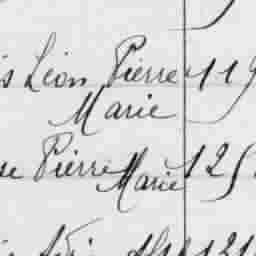 is Léon Pierre 119
Marie
se Pierre Marie 125
121